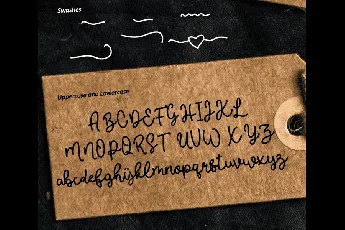 Swashes
Uppercase and Lowercase
ABCDEFGHIJKL
MNOPQRST UVW X Y Z
abcdefghijklmnopqrstuvwxyz